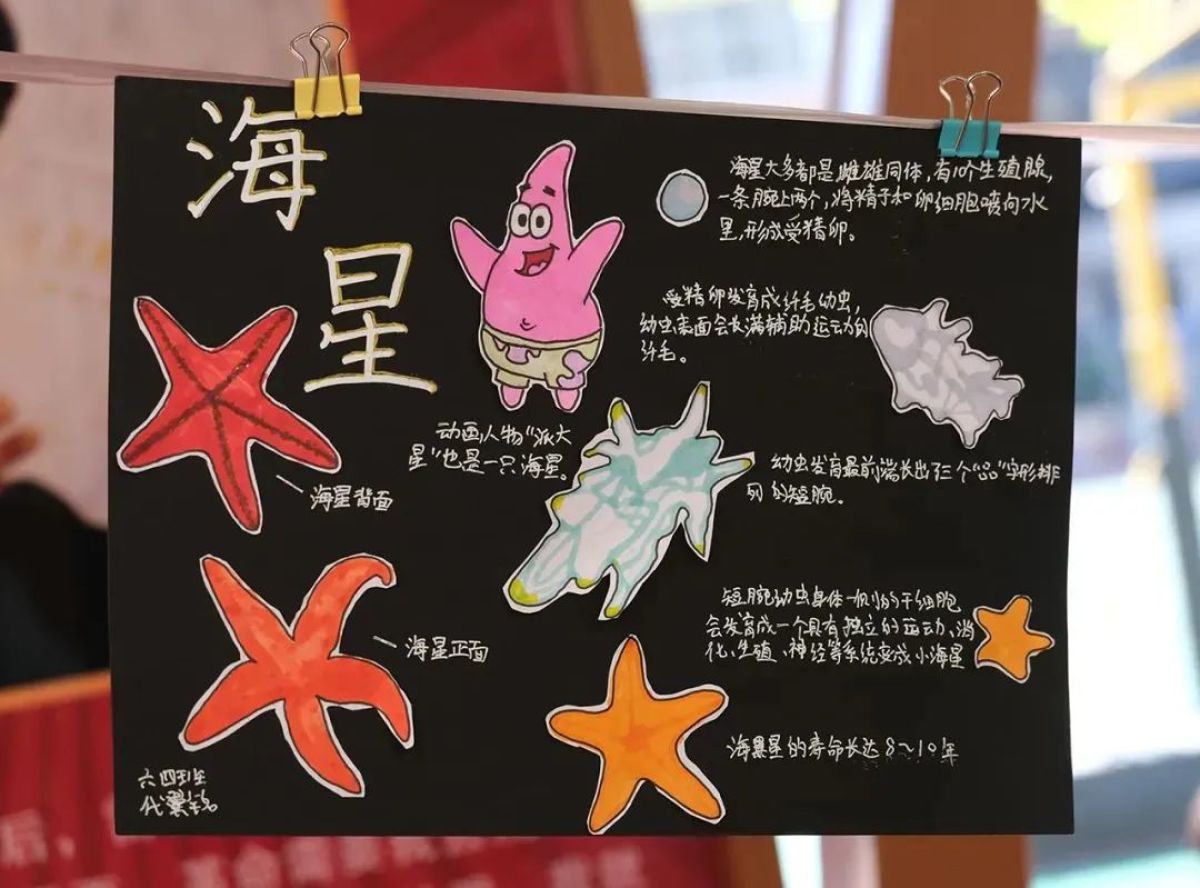 海
星
海星大多都是雌雄同体,有10个生殖腺,
一条腕上两个,将精子和卵细胞喷向水
里,形成受精卵。
受精卵发育成纤毛幼虫,
幼虫表面会长满辅助运动的
纤毛。
动画人物“派大
星”也是一只海星。
幼虫发育最前端长出了三个“品”字形排
列的短腕。
海星背面
短腕幼虫身体一侧的干细胞
会发育成一个具有独立的运动、消
化、生殖、神经等系统变成小海星
海星正面
海星的寿命长达8~10年
六四班
代翼
后,
革命需要我